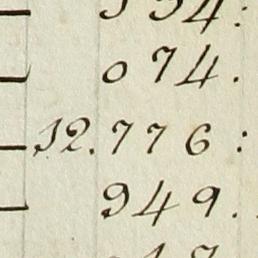 074.
12.776:
949.